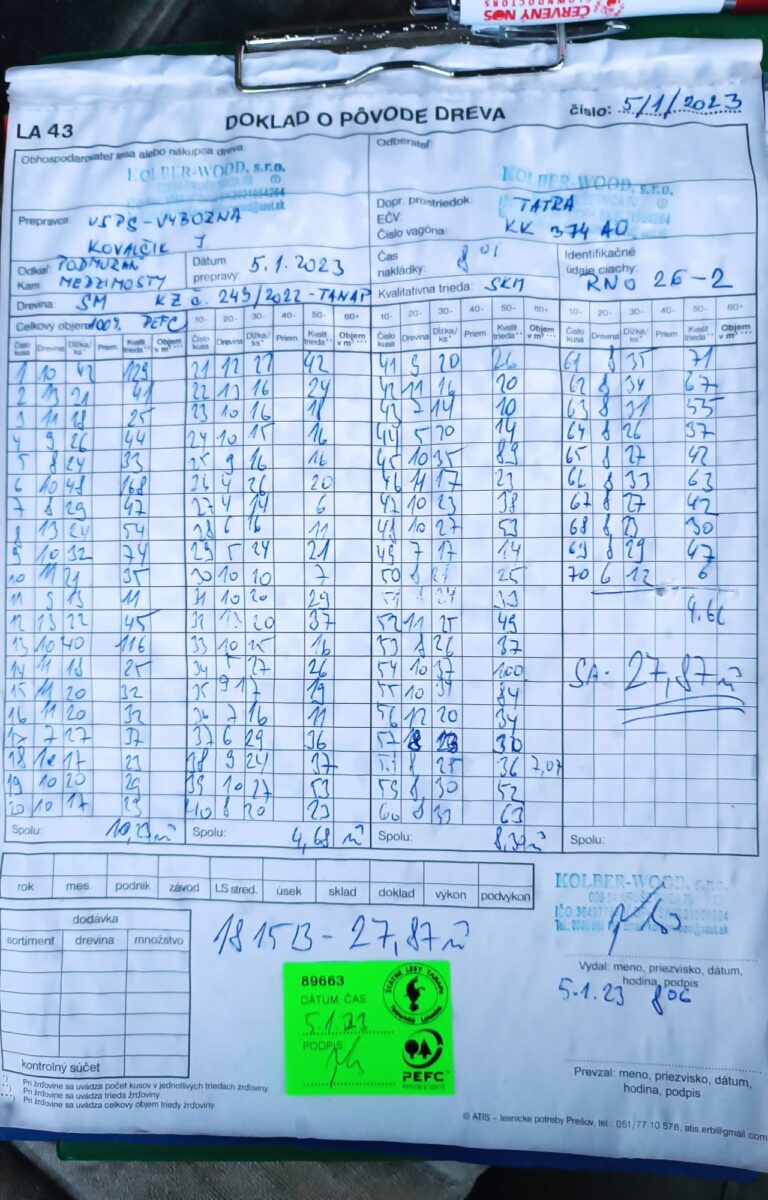 ČERVENÝ NOS
LA 43
DOKLAD O PÔVODE DREVA
číslo: 5/1/2023
Obhospodarovateľ lesa alebo nákupca dreva:
KOLBER-WOOD, s.r.o.
Odberateľ:
KOLBER-WOOD, s.r.o.
Prepravca: VSPS-VYBOZNA
KOVALČIK J
Dopr. prostriedok: TATRA
EČV:
Číslo vagóna: KK 374 AO
Odkiaľ: PODMUZAN
Kam: MEDZIMOSTY
Dátum prepravy: 5.1.2023
Čas nakládky: 8 01
Identifikačné údaje ciachy: RNO 26-2
Drevina: SM KZ č. 243/2022-TANAP
Kvalitatívna trieda: SKM
Celkový objem: 100% PEFC
10- 20- 30- 40- 50- 60+
Číslo kusa Drevina Dĺžka/ks Priem. Kvalit. trieda Objem v m³
1 10 42 129
2 13 21 41
3 11 18 25
4 9 26 44
5 8 24 33
6 10 48 168
7 8 29 47
8 13 24 54
9 10 32 74
10 11 21 35
11 9 13 11
12 13 22 45
13 10 40 116
14 11 18 25
15 11 20 32
16 11 20 32
17 7 27 37
18 10 17 23
19 10 20 29
20 10 17 23
Spolu: 10,23 m³
21 12 27 42
22 13 16 24
23 10 16 18
24 10 15 16
25 9 16 16
26 4 26 20
27 4 14 6
28 6 16 11
29 5 24 21
30 10 10 7
31 10 20 29
32 13 20 37
33 10 15 16
34 5 27 26
35 9 17 19
36 7 16 11
37 6 29 36
38 9 24 37
39 10 27 53
40 8 20 23
Spolu: 4,68 m³
41 9 20 26
42 11 16 20
43 7 14 10
44 5 20 14
45 10 35 89
46 11 17 23
47 10 23 38
48 10 27 53
49 7 17 14
50 8 21 25
51 8 24 33
52 11 25 49
53 8 26 37
54 10 37 100
55 10 34 84
56 12 20 34
57 8 23 30
58 8 25 36 7,07
59 8 30 52
60 8 33 63
Spolu: 8,30 m³
61 8 35 71
62 8 34 67
63 8 31 55
64 8 26 37
65 8 27 42
66 8 33 63
67 8 27 42
68 8 23 30
69 8 29 47
70 6 12 6
4,66
SA- 27,87 m³
Spolu:
rok mes. podnik závod LS stred. úsek sklad doklad výkon podvýkon
dodávka
sortiment drevina množstvo
kontrolný súčet
1815B - 27,87 m³
89663
DÁTUM: ČAS
5.1.23
PODPIS
ŠTÁTNE LESY TANAPu
PEFC
KOLBER-WOOD, s.r.o.
Vydal: meno, priezvisko, dátum,
hodina, podpis
5.1.23 8 06
Prevzal: meno, priezvisko, dátum,
hodina, podpis
*) Pri žrďovine sa uvádza počet kusov v jednotlivých triedach žrďoviny.
**) Pri žrďovine sa uvádza trieda žrďoviny
***) Pri žrďovine sa uvádza celkový objem triedy žrďoviny.
© ATIS – lesnícke potreby Prešov, tel.: 051/77 10 578, atis.erb@gmail.com